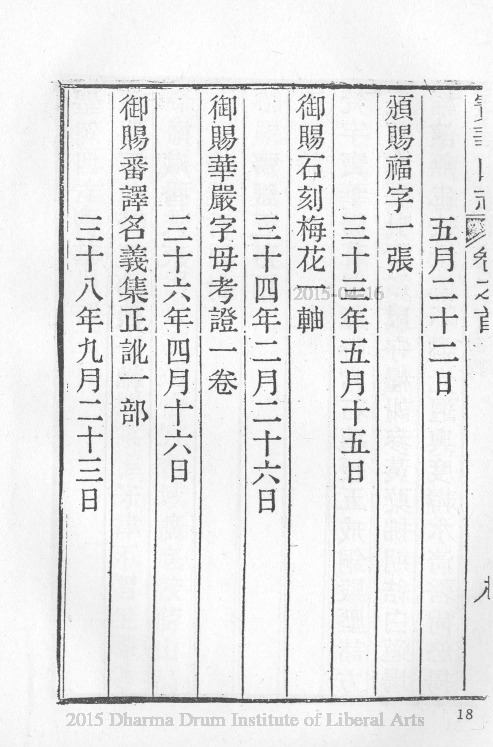 寶華山志 卷之首
五月二十二日
頒賜福字一張
三十三年五月十五日
御賜石刻梅花一軸
三十四年二月二十六日
御賜華嚴字母考證一卷
三十六年四月十六日
御賜番譯名義集正訛一部
三十八年九月二十三日
2015-04-16
18
2015 Dharma Drum Institute of Liberal Arts